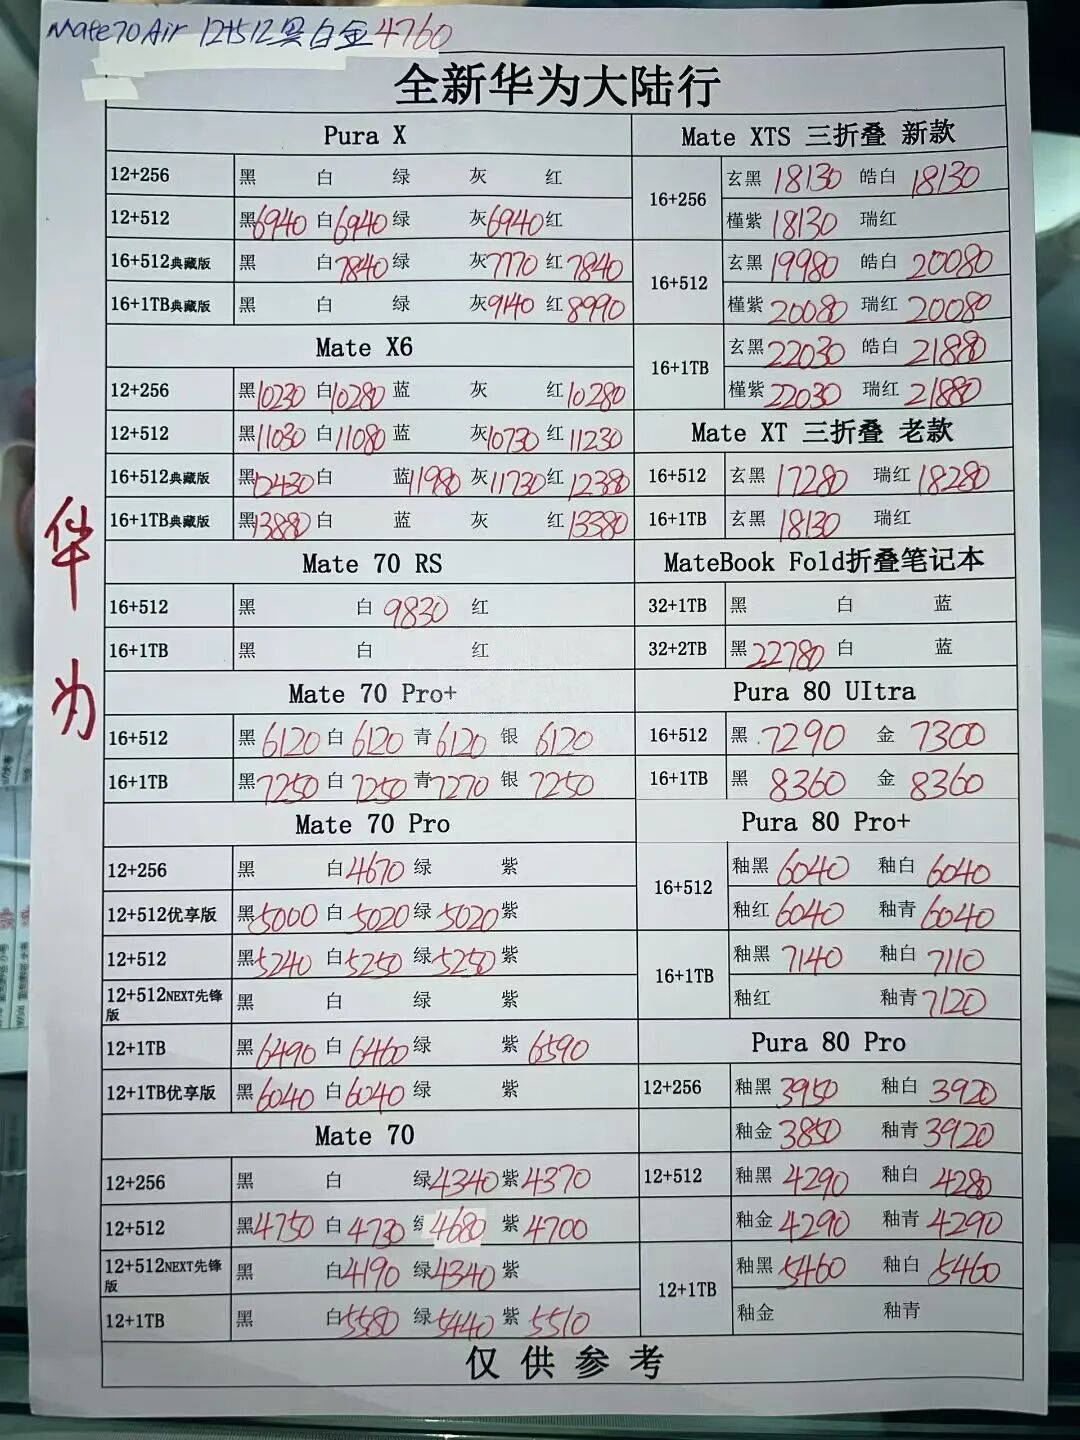 Mate70Air 12+512黑白金4760
全新华为大陆行
华为
Pura X
12+256 黑 白 绿 灰 红
12+512 黑6940 白6940 绿 灰6940 红
16+512典藏版 黑 白7840 绿 灰7770 红7840
16+1TB典藏版 黑 白 绿 灰9140 红8990
Mate X6
12+256 黑10230 白10280 蓝 灰 红10280
12+512 黑11030 白11080 蓝 灰10730 红11230
16+512典藏版 黑12430 白 蓝11980 灰11730 红12380
16+1TB典藏版 黑13880 白 蓝 灰 红13380
Mate 70 RS
16+512 黑 白9830 红
16+1TB 黑 白 红
Mate 70 Pro+
16+512 黑6120 白6120 青6120 银6120
16+1TB 黑7250 白7250 青7270 银7250
Mate 70 Pro
12+256 黑 白4670 绿 紫
12+512优享版 黑5000 白5020 绿5020 紫
12+512 黑5240 白5250 绿5250 紫
12+512NEXT先锋版 黑 白 绿 紫
12+1TB 黑6490 白6460 绿 紫6590
12+1TB优享版 黑6040 白6040 绿 紫
Mate 70
12+256 黑 白 绿4340 紫4370
12+512 黑4750 白4730 4680 紫4700
12+512NEXT先锋版 黑 白4190 绿4340 紫
12+1TB 黑 白5580 绿5440 紫5510
Mate XTS 三折叠 新款
16+256 玄黑18130 皓白18130
槿紫18130 瑞红
16+512 玄黑19980 皓白20080
槿紫20080 瑞红20080
16+1TB 玄黑22030 皓白21880
槿紫22030 瑞红21880
Mate XT 三折叠 老款
16+512 玄黑17280 瑞红18280
16+1TB 玄黑18130 瑞红
MateBook Fold折叠笔记本
32+1TB 黑 白 蓝
32+2TB 黑22780 白 蓝
Pura 80 UItra
16+512 黑7290 金7300
16+1TB 黑8360 金8360
Pura 80 Pro+
16+512 釉黑6040 釉白6040
釉红6040 釉青6040
16+1TB 釉黑7140 釉白7110
釉红 釉青7120
Pura 80 Pro
12+256 釉黑3950 釉白3920
釉金3850 釉青3920
12+512 釉黑4290 釉白4280
釉金4290 釉青4290
12+1TB 釉黑5460 釉白5460
釉金 釉青
仅供参考